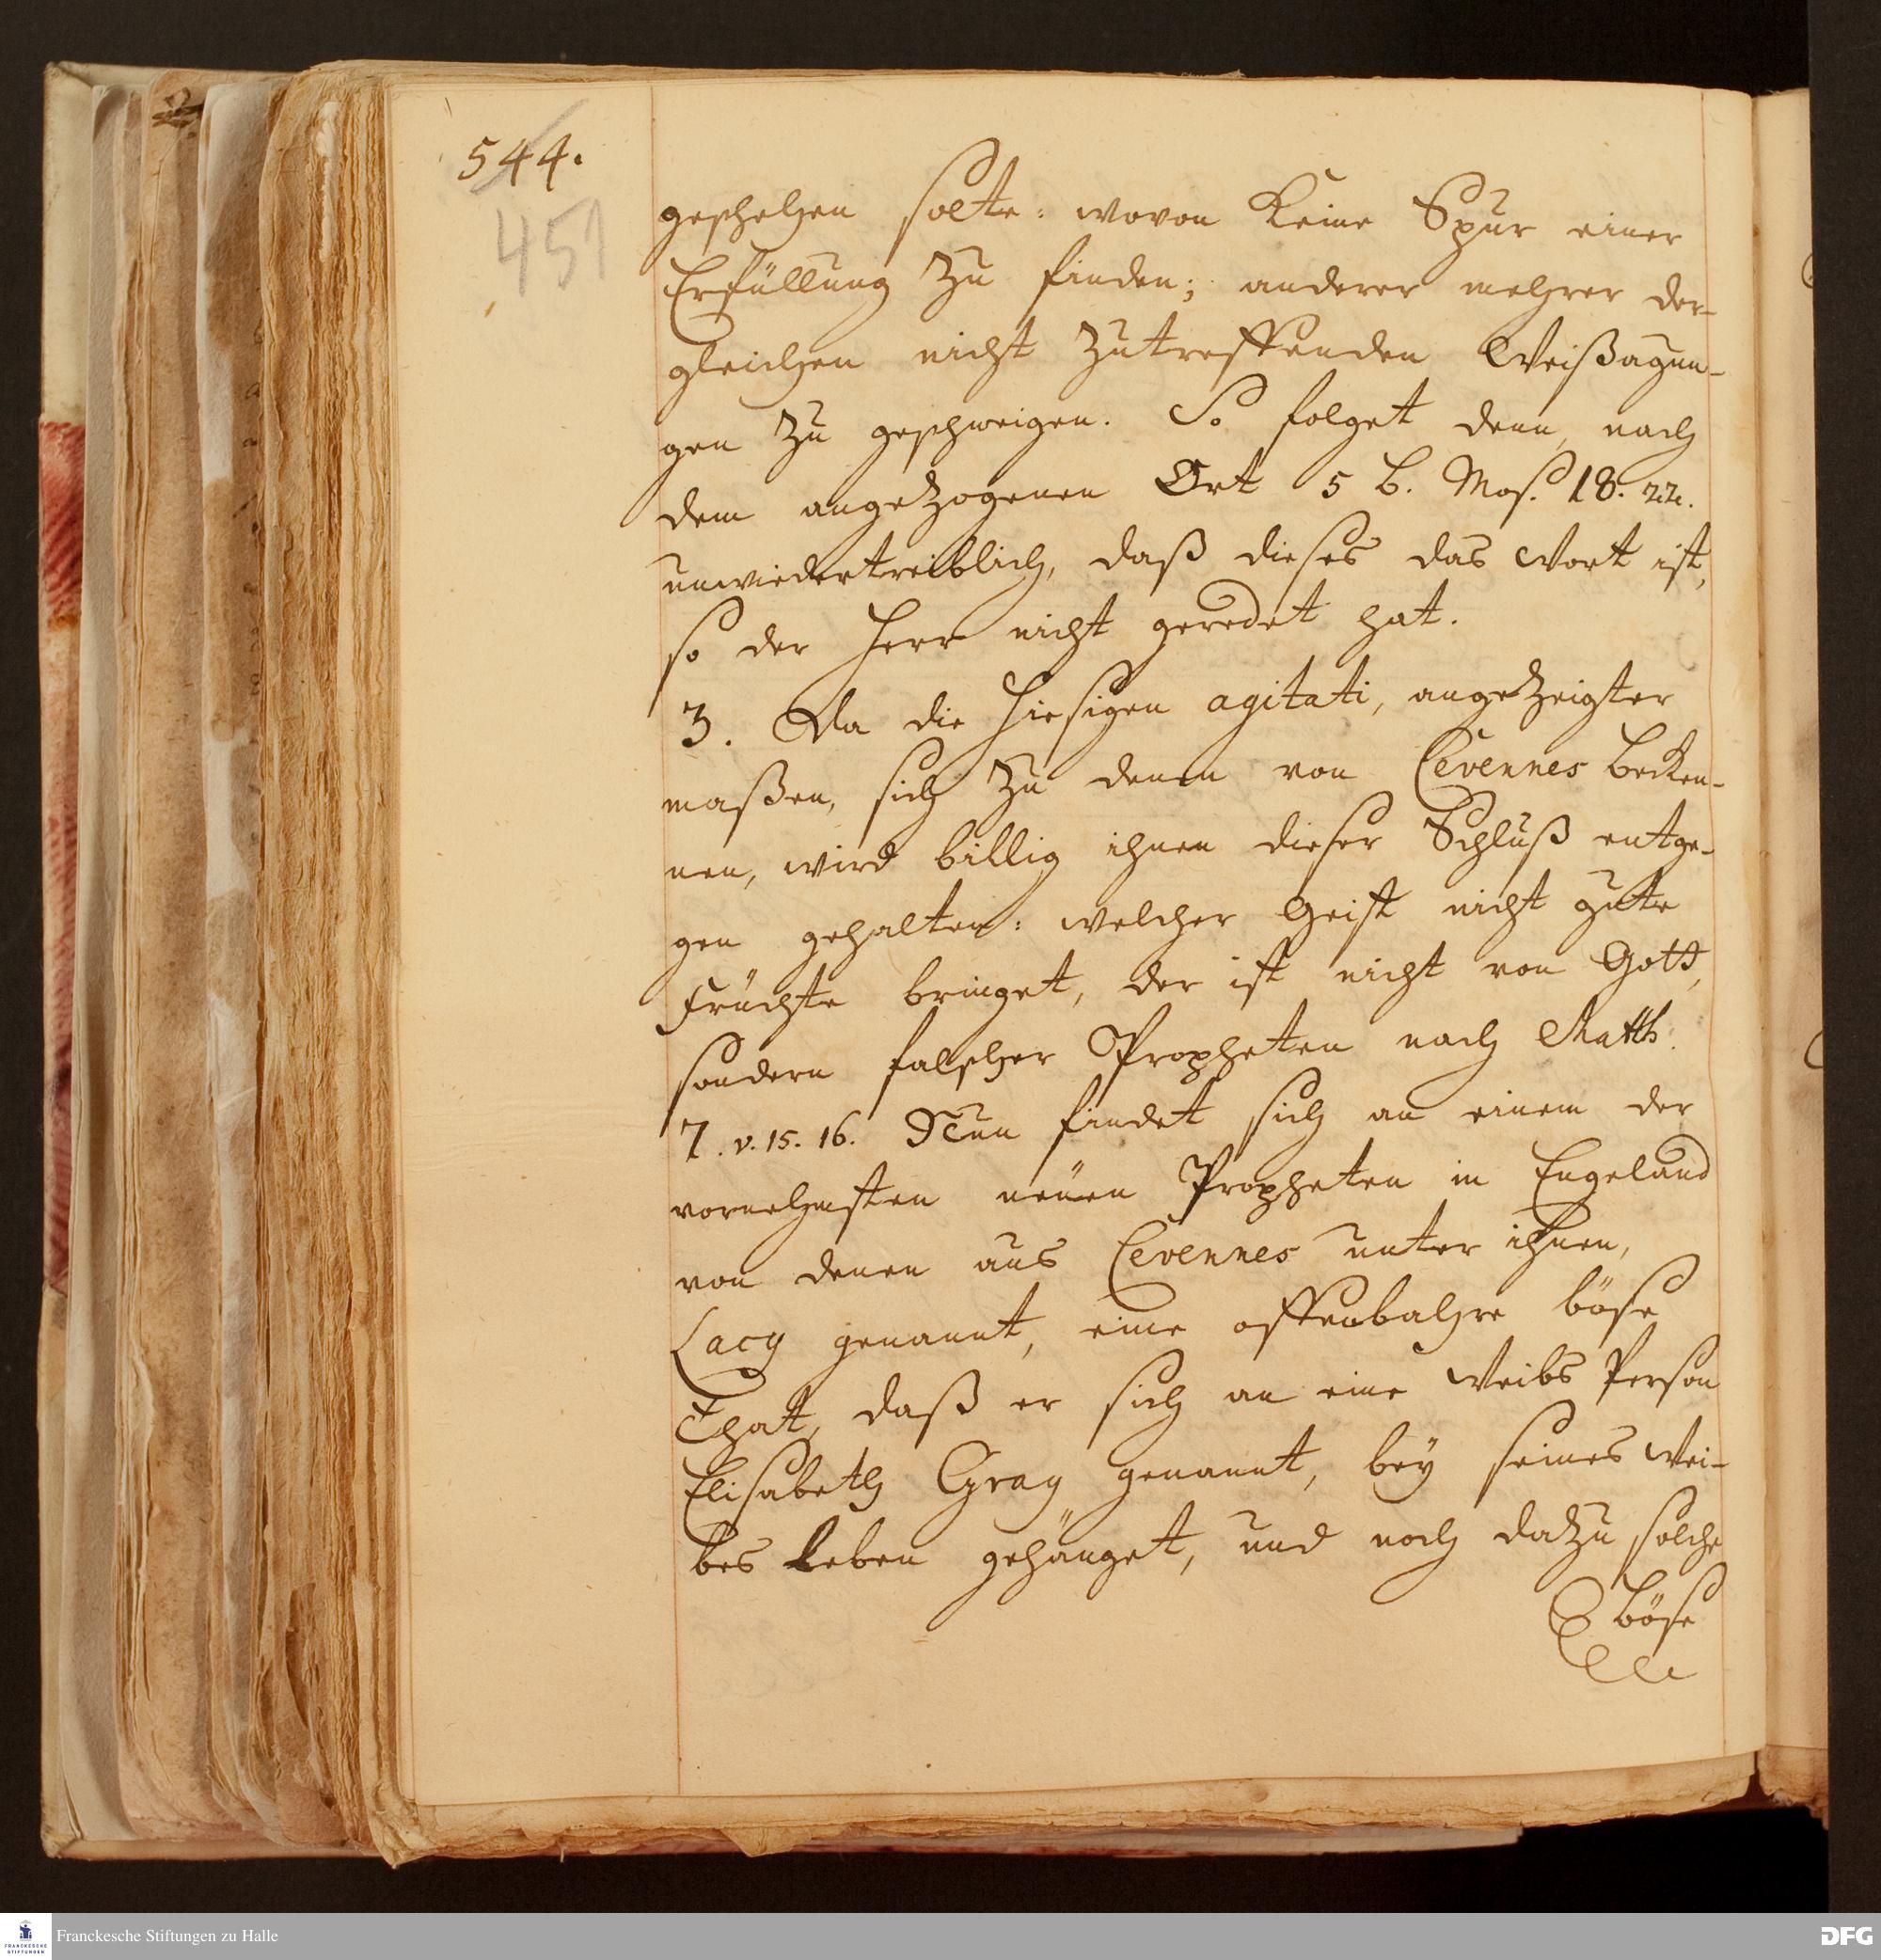 544.
451
geschehen solte: wovon keine Spur einer
Erfüllung zu finden; anderer mehrer der-
gleichen nicht zutreffenden Weißagun-
gen zu geschweigen. So folget denn, nach
dem angezogenen Ort 5 B. Mos. 18. 22.
unwiedertreiblich, daß dieses das Wort ist,
so der Herr nicht geredet hat.
3. Da die hiesigen agitati, angezeigter
maßen, sich zu denen von Cevennes beken-
nen, wird billig ihnen dieser Schluß entge-
gen gehalten: welcher Geist nicht gute
Früchte bringet, der ist nicht von Gott,
sondern falscher Propheten nach Matth.
7. v. 15. 16. Nun findet sich an einem der
vornehmsten neuen Propheten in Engeland
von denen aus Cevennes unter ihnen,
Lacy genannt, eine offenbahre böse
That, daß er sich an eine Weibs Person
Elisabeth Gray genannt, bey seines Wei-
bes Leben gehänget, und noch dazu solche
böse
Franckesche Stiftungen zu Halle
FRANCKESCHE
STIFTUNGEN
DFG